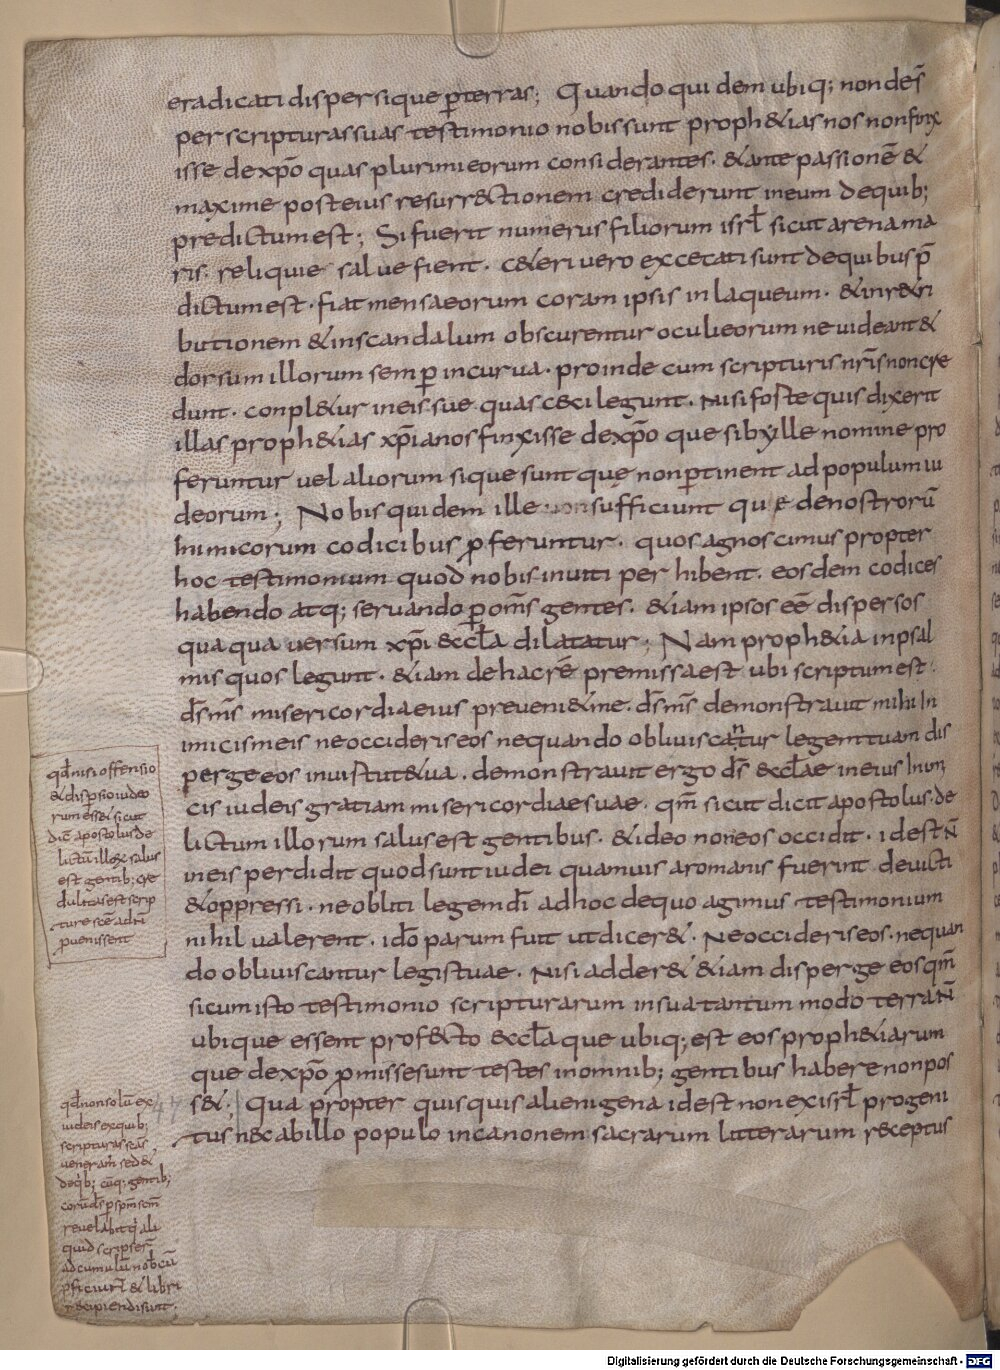 eradicati dispersique p̄terras; Quando quidem ubiq; non dēs
per scripturas suas testimonio nobis sunt proph&ias nos non finx
isse dexp̄o quas plurimi eorum considerantes. &ante passionē &
maxime posteius resurr&ctionem crediderunt ineum dequib;
predictum est; Si fuerit numerus filiorum isrł sicut arena ma
ris. reliquie salue fient. c&eri vero excecati sunt dequibus p̄
dictum est. fiat mensa eorum coram ipsis in laqueum. & inr&ri
butionem & inscandalum obscurentur oculi eorum ne uideant &
dorsum illorum semp̄ incurua. proinde cum scripturis nr̄is non cre
dunt. conpl&ur ineis sue quas c&ci legunt. Nisi foste quis dixerit
illas proph&ias xp̄ianos finxisse dexp̄o que sibylle nomine pro
feruntur uel aliorum sique sunt que non p̄tinent ad populum iu
deorum; Nobis quidem ille sufficiunt que denostrorū
Inimicorum codicibus p̄feruntur. quos agnoscimus propter
hoc testimonium quod nobis inuiti per hibent. eosdem codices
habendo atq; seruando p̄ om̄s gentes. &iam ipsos eē dispersos
qua qua uersum xp̄i &ccła dilatatur; Nam proph&ia inpsal
mis quos legunt. &iam de hac rē premissa est ubi scriptum est.
d̄s m̄s misericordia eius preueni&me. d̄s m̄s demonstrauit mihi In
imicis meis ne occideris eos nequando obliuiscantur legem tuam dis
perge eos inuistut&ua. demonstrauit ergo d̄s &ccłae ineius Inim
cis iudeis gratiam misericordiae suae. qm̄ sicut dicit apostolus. de
lictum illorum salus est gentibus. &ideo non eos occidit. id est N̄
ineis perdidit quod sunt iudei quamuis aromanis fuerint deuicti
&oppressi. ne obliti legem dī adhoc dequo agimus testimonium
nihil valerent. idō parum fuit ut dicer&. Ne occideris eos. nequan
do obliuiscantur legistuae. Nisi adder& &iam disperge eos qm̄
sicum isto testimonio scripturarum insua tantum modo terra N̄
ubique essent prof&cto &ccła que ubiq; est eos proph&iarum
que dexp̄o p̄misse sunt testes inomnib; gentibus habere non pos
s&; Qua propter quisquis alienigena id est non ex isrł progeni
tus n&c ab illo populo incanonem sacrarum litterarum r&ceptus
qđ nisi offensio
& disp̄sio iudeo
rum ess& sicut
dic̄ apostolus de
lictū illoꝝ salus
est gentib; cre
dulitas est scrip
ture scē ad nr̄i
puenissent
qđ non solū ex
iudeis ex quib;
scripturas suas
ueneram̄ sed &
de q̄b; cūq; gentib;
corū d̄s p̄ sp̄m scm̄
reuelabit q̄ ali
quid scripser̄
ad cumulū nob̄ cū
p̄ficiunt & libri
r&cipiendi sunt.
Digitalisierung gefördert durch die Deutsche Forschungsgemeinschaft - DFG